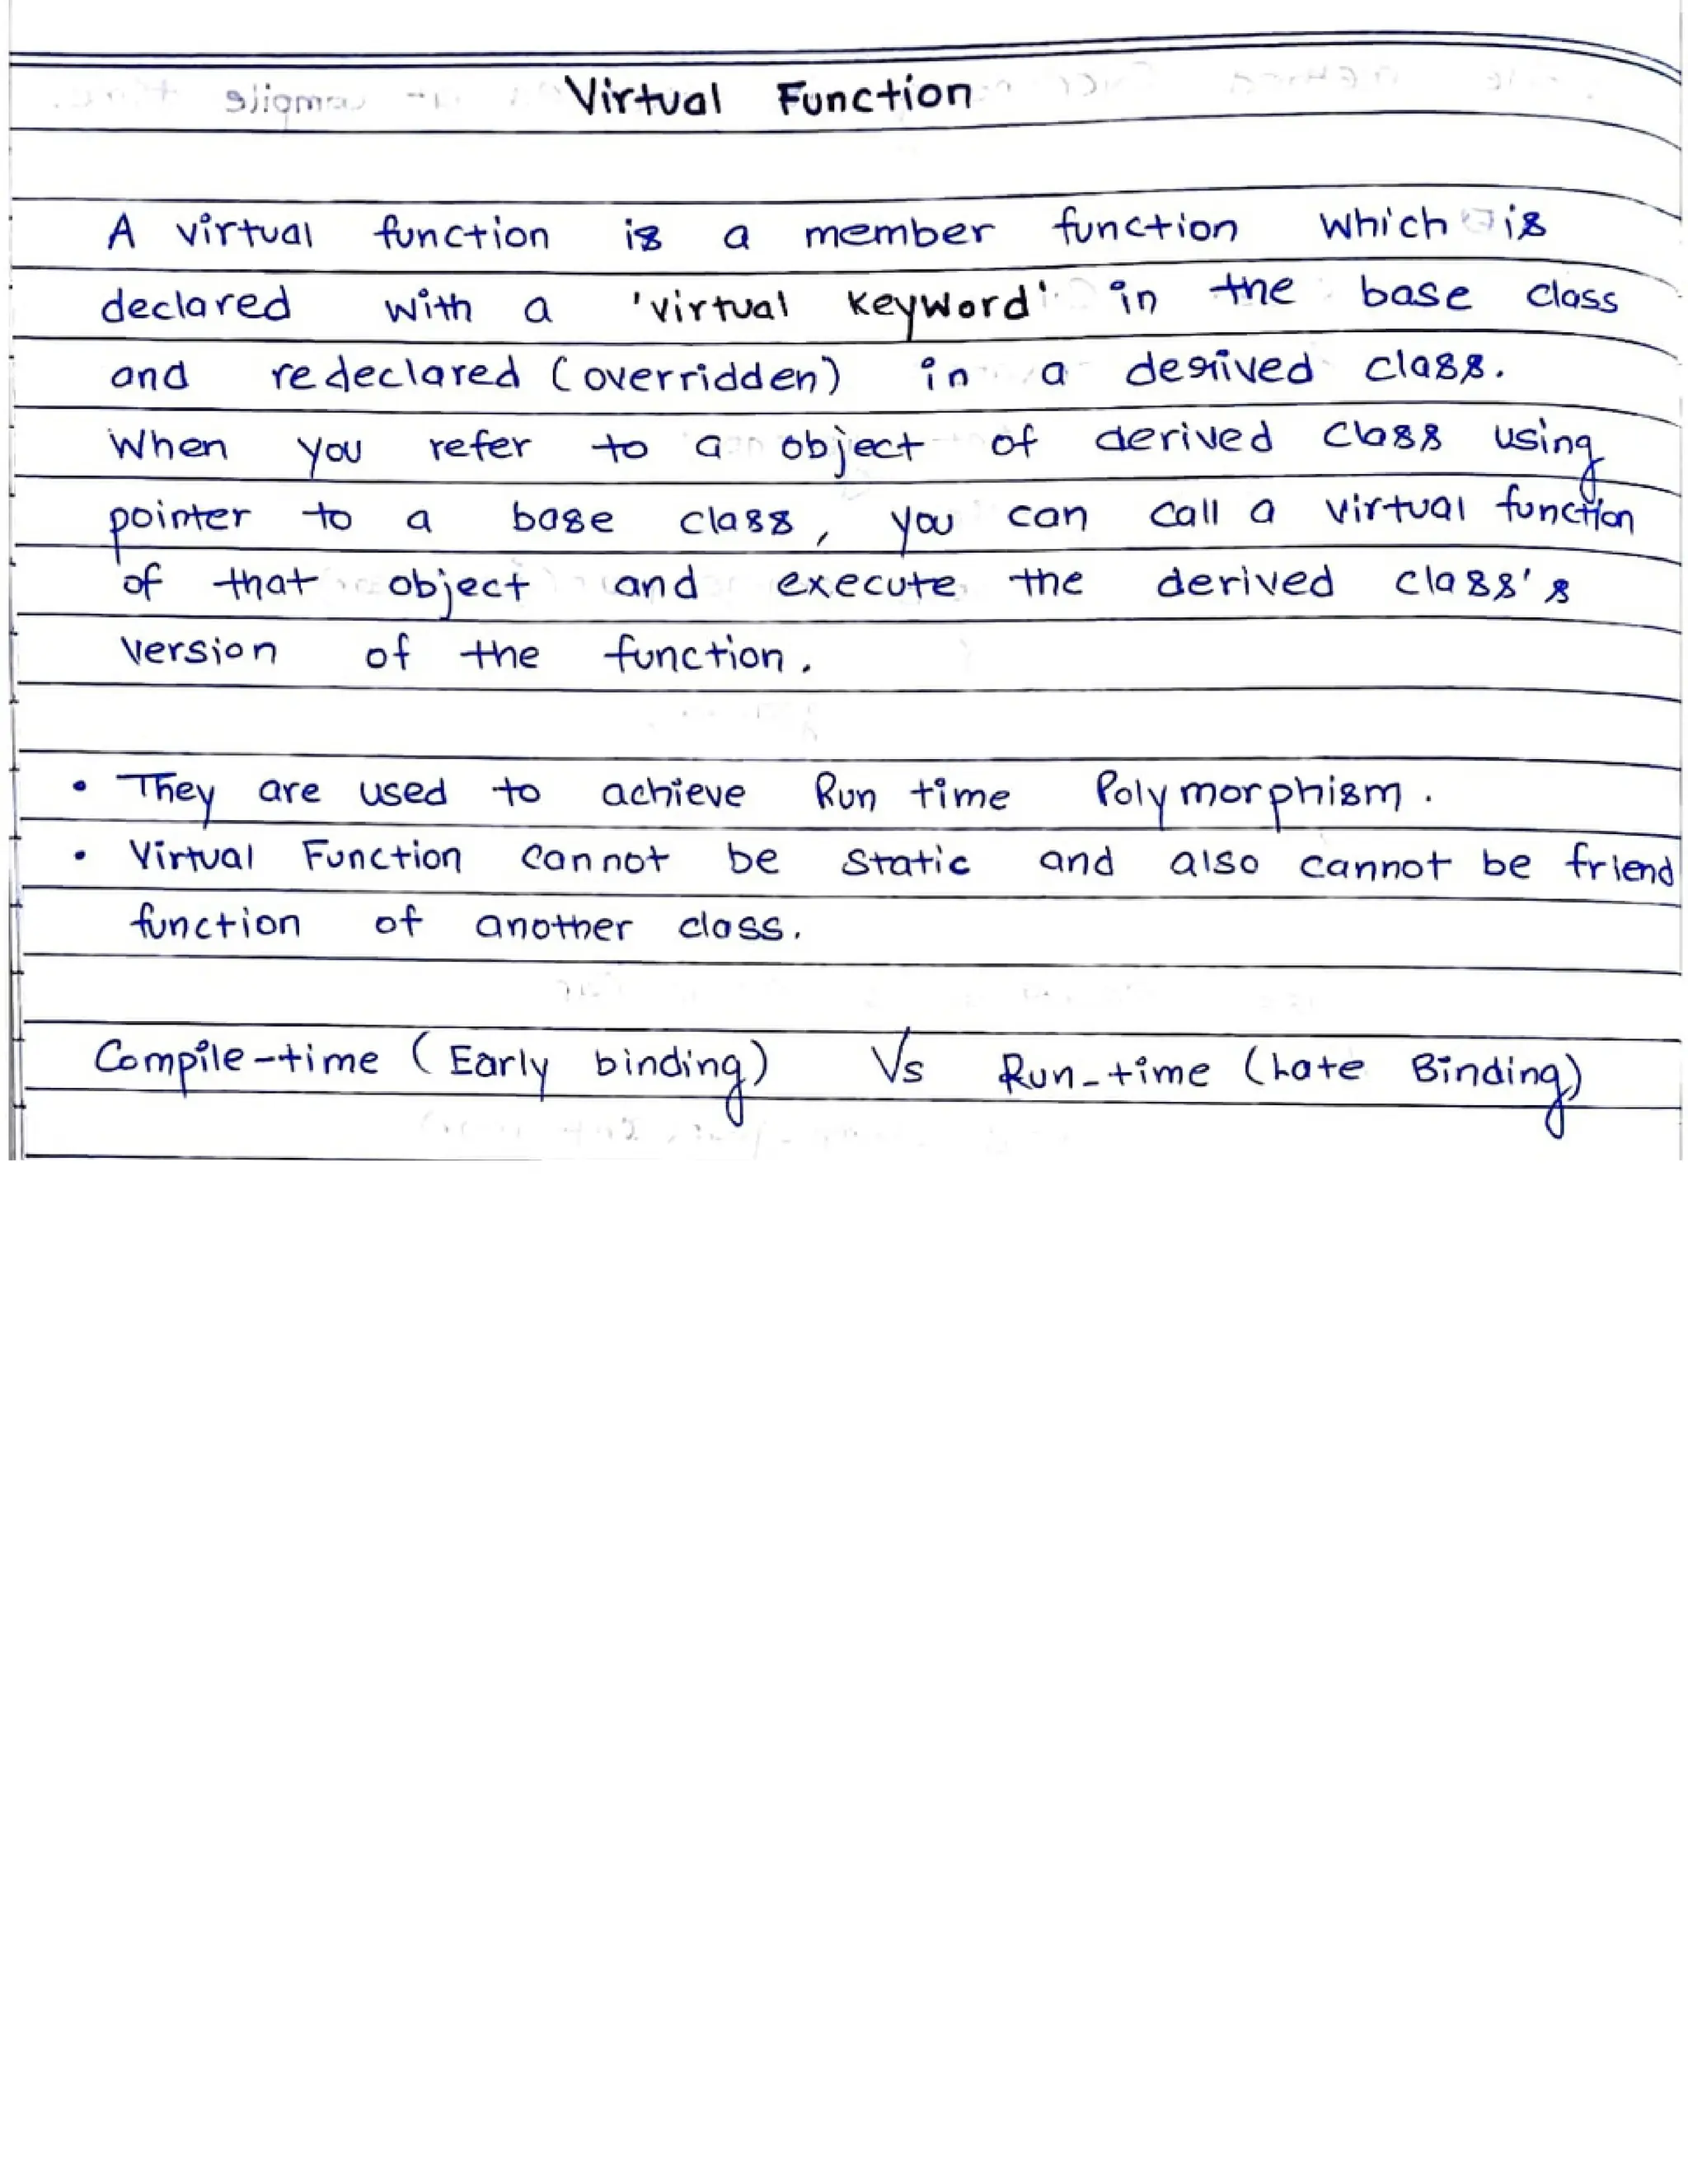 Virtual Function
A virtual function is a member function which is
declared with a 'virtual keyword' in the base class
and redeclared (overridden) in a derived class.
When you refer to a object of derived class using
pointer to a base class, you can call a virtual function
of that object and execute the derived class's
version of the function.
• They are used to achieve Run time Polymorphism.
• Virtual Function cannot be static and also cannot be friend
function of another class.
Compile-time (Early binding) Vs Run-time (Late Binding)